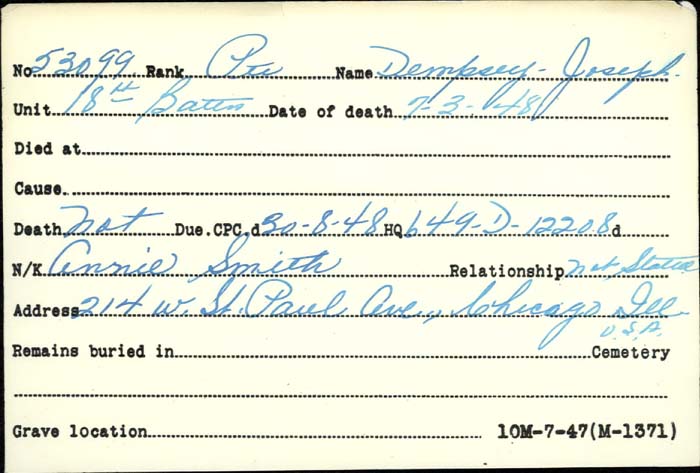 No 53099 Rank Pte Name Dempsey - Joseph.
Unit 18th Battn Date of death 7-3-48
Died at
Cause
Death Not Due. CPC d 30-8-48 HQ 649-D-12208 d
N/K Annie Smith Relationship Not Stated
Address 214 W. St. Paul Ave., Chicago Ill
U.S.A.
Remains buried in Cemetery
Grave location 10M-7-47(M-1371)